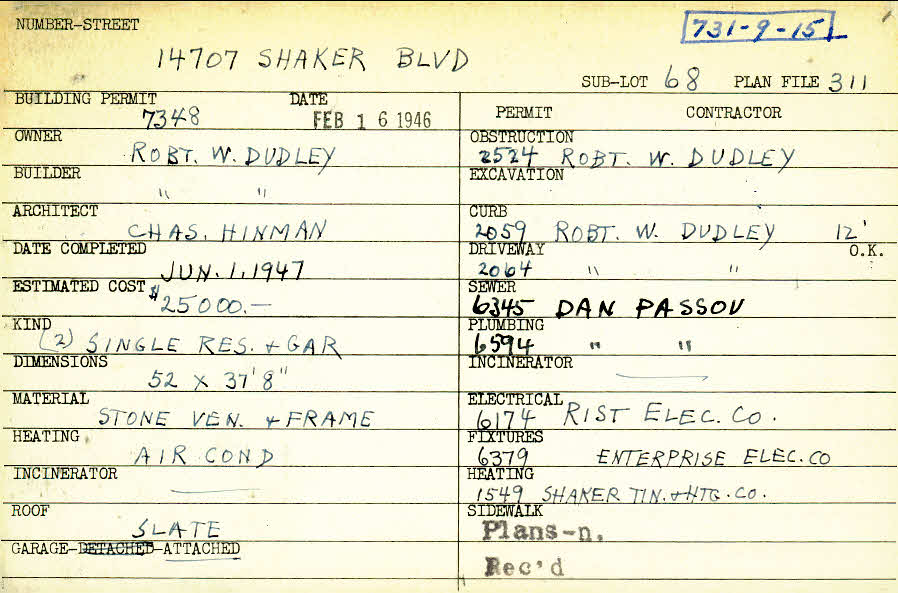 NUMBER-STREET
731-9-15
14707 SHAKER BLVD
SUB-LOT 68 PLAN FILE 311
BUILDING PERMIT 7348 DATE FEB 16 1946
OWNER
ROBT. W. DUDLEY
BUILDER
" "
ARCHITECT
CHAS. HINMAN
DATE COMPLETED
JUN. 1, 1947
ESTIMATED COST $25000.—
KIND
(2) SINGLE RES. + GAR
DIMENSIONS
52 x 37'8"
MATERIAL
STONE VEN. + FRAME
HEATING
AIR COND
INCINERATOR
—
ROOF
SLATE
GARAGE-DETACHED-ATTACHED
PERMIT CONTRACTOR
OBSTRUCTION
2524 ROBT. W. DUDLEY
EXCAVATION
"
CURB
2059 ROBT. W. DUDLEY 12'
DRIVEWAY O.K.
2064 " "
SEWER
6345 DAN PASSOV
PLUMBING
6594 " "
INCINERATOR
—
ELECTRICAL
6174 RIST ELEC. CO.
FIXTURES
6379 ENTERPRISE ELEC. CO
HEATING
1549 SHAKER TIN. + HTG. CO.
SIDEWALK
Plans-n.
Rec'd